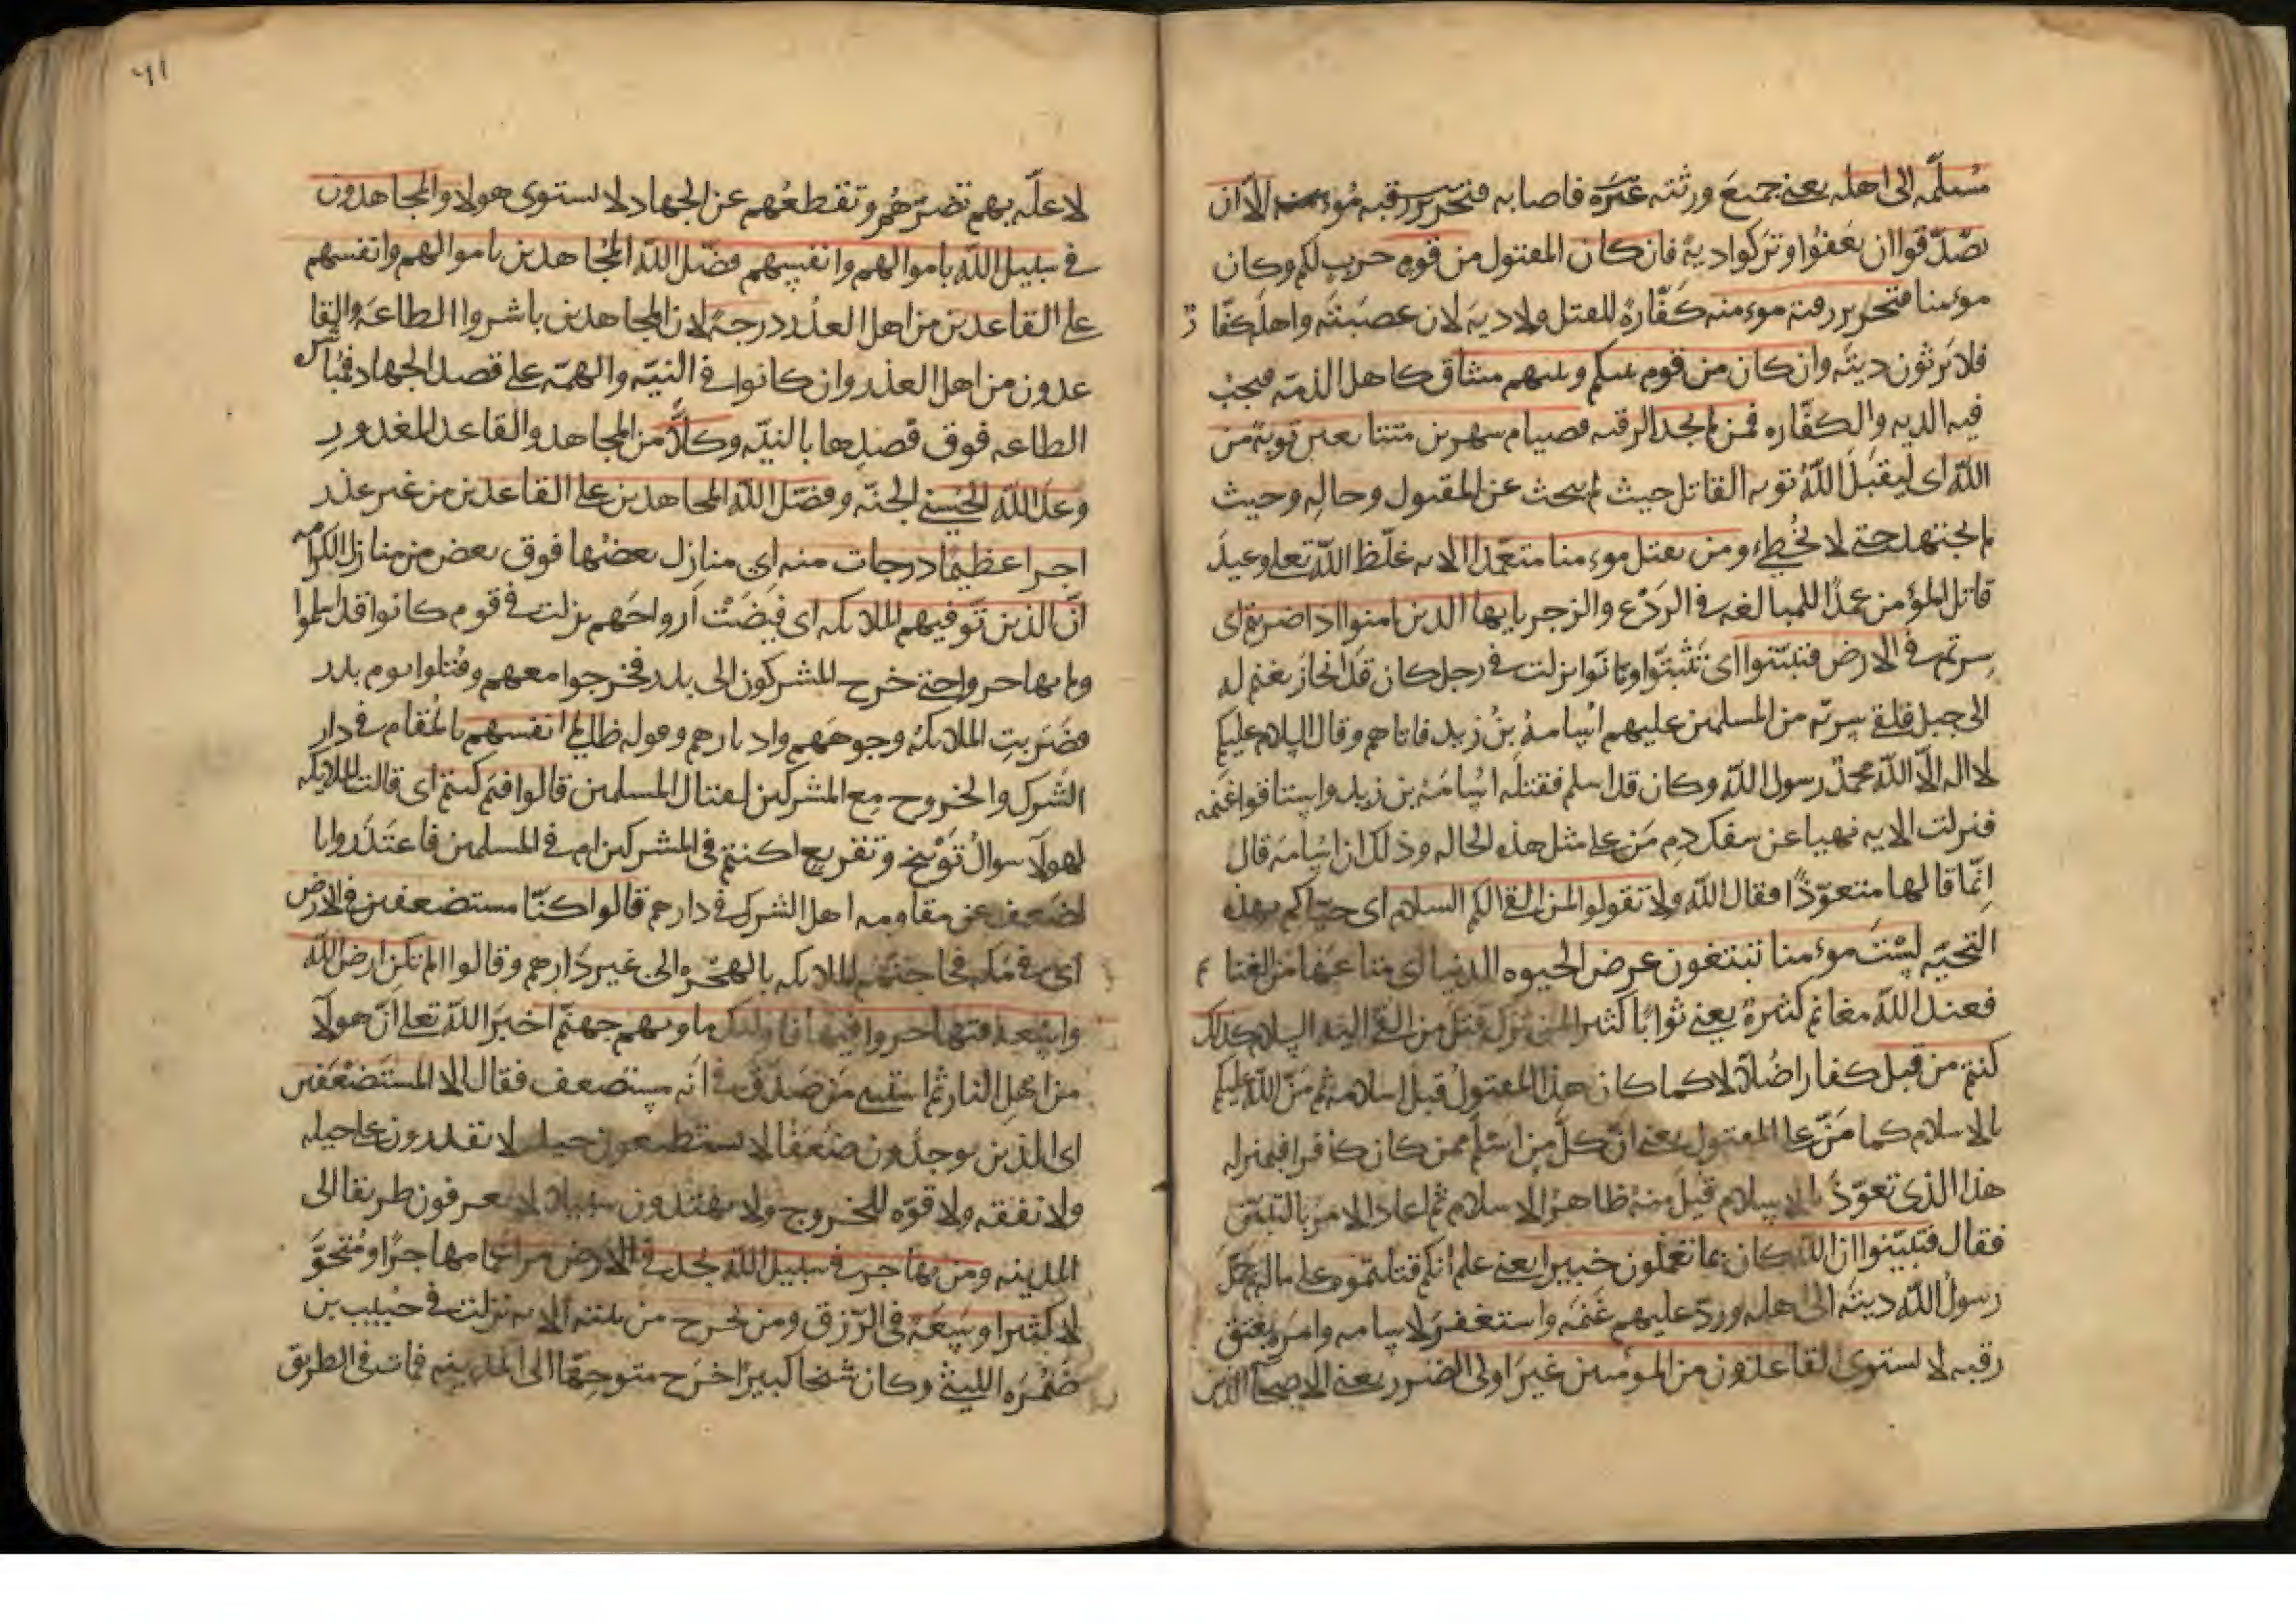 مُسلَّمه الى اهله يعنى جميعَ ورثته غيره فاصابه فتحرير رقبه مُؤمنه الّا ان
يصّدّقوا ان يَعفُوا ويَتركوا ديةً فان كان المقتول من قومٍ حربٍ لكم وكان
مؤمنا فتحرير رقبة مؤمنه كفّارةً للقتل ولا ديه لان عصبَتَه واهلَه كفّار
فلا يَرثون ديتَه وان كان من قوم بينكم وبينهم ميثاق كاهل الذمّه فيجبُ
فيه الديه والكفّاره فمن لم يجد الرقبه فصيام شهرين متتابعين توبة من
اللّه اى ليَقبَلَ اللّهُ توبه القاتل حيث لم يبحث عن المقتول وحالِه وحيث
لم يجتهد حتى لا يُخطِئ ومن يقتل مؤمنا متعمّدا الايه غلّظ اللّه تعلى وعيدَ
قاتل المؤمن عمدًا للمبالغه فى الرَدْع والزجر يايها الذين امنوا اذا ضربتم اى
سِرتم فى الارض فتبيّنوا اى تَثبّتوا وتانّوا نزلت فى رجل كان قد انحازَ بغنم له
الى جبل فلقى سريّه من المسلمين عليهم اسامةُ بنُ زيد فاتاهم وقال السلام عليكم
لا اله الّا اللّه محمدٌ رسول اللّه وكان قد اسلم فقتلَه اسامةُ بن زيد واستاقوا غنمه
فنزلت الايه نهيا عن سفك دمِ مَن على مثل هذه الحاله وذلك ان اسامه قال
انّما قالها متعوّذًا فقال اللّه ولا تقولوا لمن القا اليكم السلام اى حيّاكم بهذه
التحيّه لسْتَ مؤمنا تبتغون عرض الحيوه الدنيا اى متاعَها من الغنايم
فعند اللّه مغانم كثيرةٌ يعنى ثوابًا كثيرا لمن ترك قتل من القى اليه السلام كذلك
كنتم من قبل كفارا ضُلّالا كما كان هذا المقتولُ قبل اسلامه ثم مَنّ اللّه عليكم
بالاسلام كما مَنّ على المقتول يعنى انّ كلّ من اسلم ممن كان كافرا فبمنزله
هذا الذى تعوّذَ بالاسلام قُبِلَ منهُ ظاهرُ الاسلام ثم اعاد الامرَ بالتبيّن
فقال فتبيّنوا ان اللّه كان بما تعملون خبيرا يعنى علم انكم قتلتموه على مالِه ثم حمل
رسولُ اللّه ديتَه الى اهله وردّ عليهم غنمَه واستغفرَ لاسامه وامرَه بعتق
رقبه لا يستوى القاعدون من المؤمنين غيرَ اولى الضرر يعنى الاصحآ الذين
٦١
لا علّه بهم تضرّهُم وتقطعُهم عن الجهاد لا يستوى هولاء والمجاهدون
فى سبيل اللّه باموالهم وانفسِهم فضّل اللّه المُجاهدين باموالهم وانفسهم
على القاعدين من اهل العذر درجةً لان المجاهدين باشروا الطاعةَ والقا
عدون من اهل العذر وان كانوا فى النيّه والهمّه على قصد الجهاد فمُباشره
الطاعه فوق قصدِها بالنيّه وكلًّا من المجاهد والقاعد المعذورِ
وعدَ اللّه الحُسنى الجنّه وفضّل اللّه المجاهدين على القاعدين من غير عذر
اجرا عظيمًا درجات منه اى منازل بعضُها فوق بعض من منازل الكرامه
انّ الذين توفيهم الملايكه اى قُبِضَتْ اَرواحَهم نزلت فى قوم كانوا قد اسلموا
ولم يهاجروا حتى خرج المشركون الى بدر فخرجوا معهم وقُتلوا يوم بدر
فضَربتِ الملايكةُ وجوهَهم وادبارهم وقوله ظالمى انفسهم بالمُقام فى دار
الشرك والخروج مع المشركين لقتال المسلمين قالوا فيم كنتم اى قالت الملايكه
لهولآ سوالُ تَوْبيخ وتقريع اكنتم فى المشركين ام فى المسلمين فاعتذَروا با
لضعف عن مقاومه اهل الشرك فى دارهم قالوا كنّا مستضعفين فى الارض
اى فى مكه فحاجّتهُم الملايكه بالهجره الى غير دَارهم وقالوا الم تكن ارض اللّه
واسِعة فتهاجروا فيها فاوليك ماويهم جهنّم اخبرَ اللّه تعلى انّ هولآ
من اهلِ النار ثم استثنى مَن صَدقَ فى انّه مستضعف فقال الا المستَضْعَفين
اى الذين يوجدُون ضُعَفَا لا يستطيعون حيله لا يقدرون على حيله
ولا نفقه ولا قوّه للخروج ولا يهتدون سبيلا لا يعرفون طريقا الى
المدينه ومن يهاجر فى سبيل اللّه يجد فى الارض مراغما مهاجرًا ومُتحوَّ
لا كثيرا وسَعَة فى الرّزق ومن يخرج من بيته الايه نزلت فى حبيب بن
ضَمُرَه الليثىّ وكان شيخا كبيرًا خرَج متوجِهًا الى المدينه فمات فى الطريق